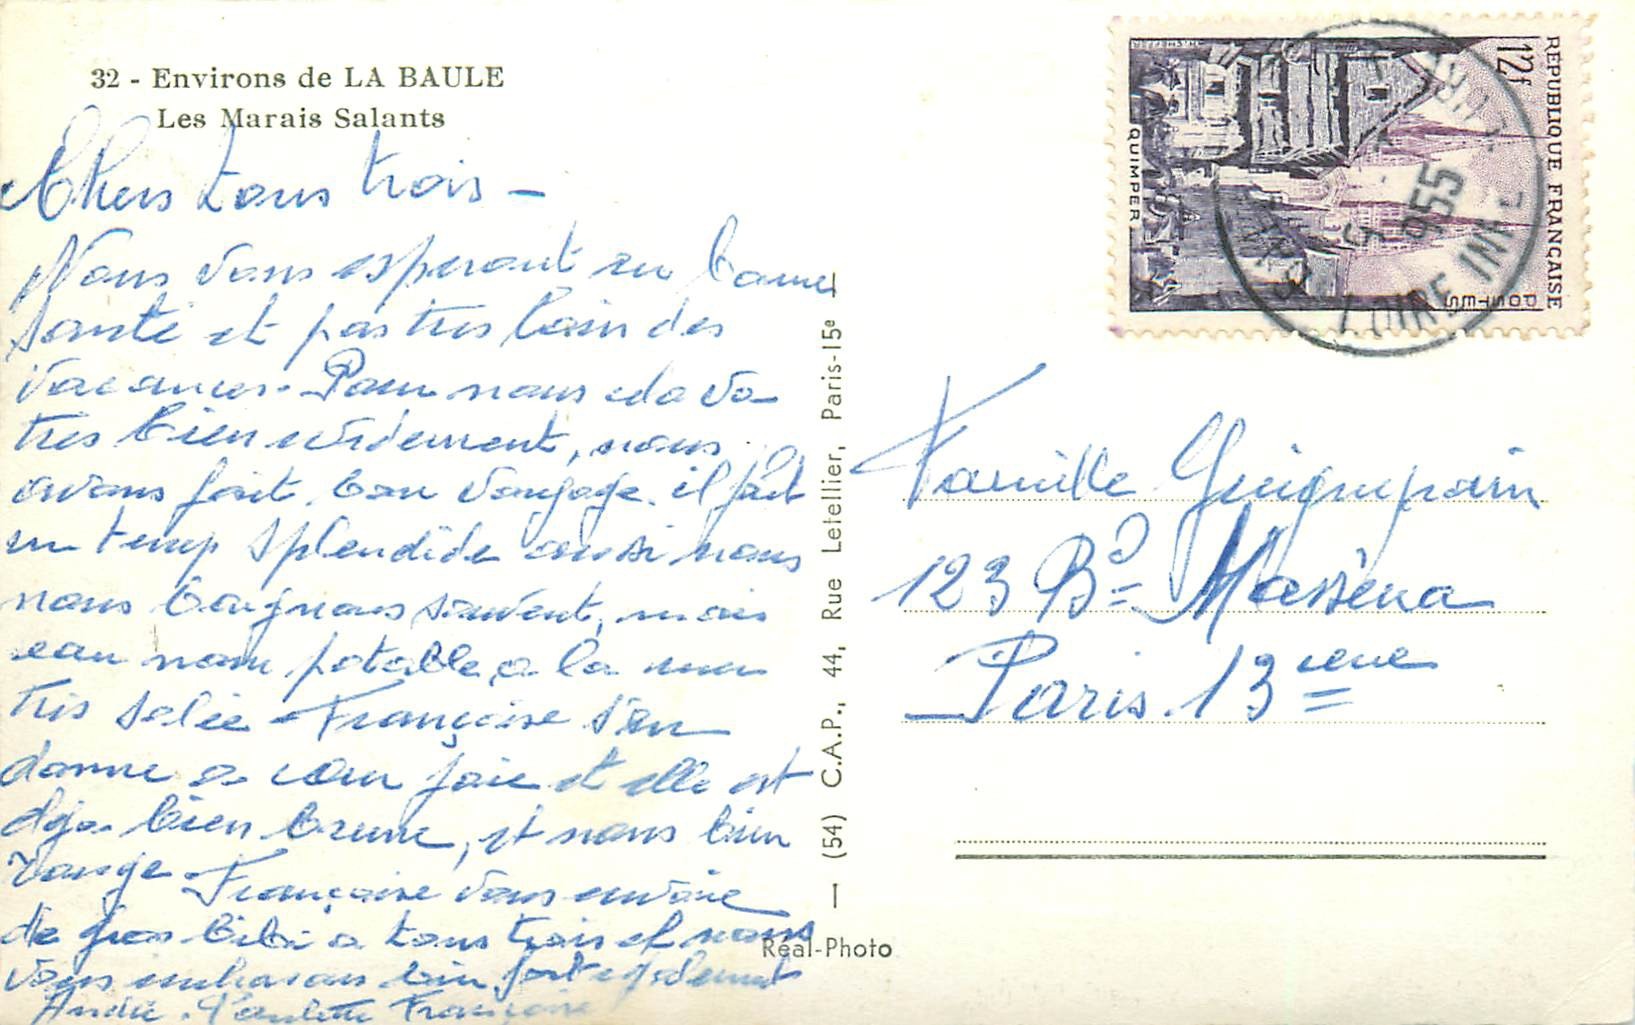 32 - Environs de LA BAULE
Les Marais Salants
Chers tous trois -
Nous vous esperont en bonne
Santé et pas tres loin des
vacances. Pour nous cela va
tres bien evidement, nous
avons fait bon voyage. il fait
un temp splendide aussi nous
nous baignons souvent, mais
eau non potable, a la mer
tres salée - Françoise s'en
donne a cœur joie et elle est
deja bien brune, et nous bien
rouge - Françoise vous envoie
de gros bibi a tous trois et nous
vous embrasons bien fort egalement
André. Paulette Françoise
(54) C.A.P., 44, Rue Letellier, Paris-15e
Réal-Photo
REPUBLIQUE FRANÇAISE
12f
POSTES
QUIMPER
1955
LOIRE INFRE
Famille Guignepain
123 Bd Masséna
Paris. 13eme